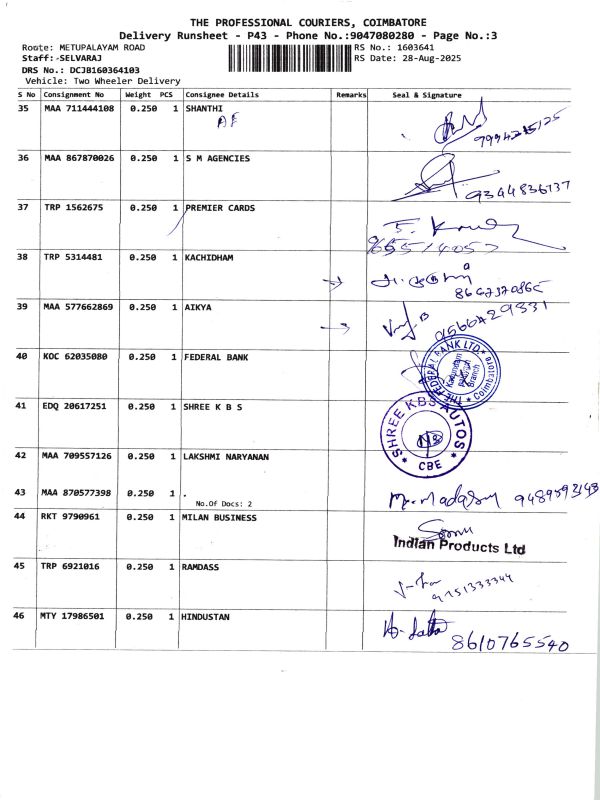 THE PROFESSIONAL COURIERS, COIMBATORE
Delivery Runsheet - P43 - Phone No.:9047080280 - Page No.:3
Route: METUPALAYAM ROAD RS No.: 1603641
Staff:-SELVARAJ RS Date: 28-Aug-2025
DRS No.: DCJB160364103
Vehicle: Two Wheeler Delivery
S No Consignment No Weight PCS Consignee Details Remarks Seal & Signature
35 MAA 711444108 0.250 1 SHANTHI
36 MAA 867870026 0.250 1 S M AGENCIES
9344836137
37 TRP 1562675 0.250 1 PREMIER CARDS
38 TRP 5314481 0.250 1 KACHIDHAM
39 MAA 577662869 0.250 1 AIKYA
40 KOC 62035080 0.250 1 FEDERAL BANK
THE FEDERAL BANK LTD. Coimbatore
Branch
41 EDQ 20617251 0.250 1 SHREE K B S
SHREE KBS AUTOS
CBE
42 MAA 709557126 0.250 1 LAKSHMI NARYANAN
43 MAA 870577398 0.250 1 .
No.Of Docs: 2
44 RKT 9790961 0.250 1 MILAN BUSINESS
Indian Products Ltd
45 TRP 6921016 0.250 1 RAMDASS
9751333344
46 MTY 17986501 0.250 1 HINDUSTAN
8610765540